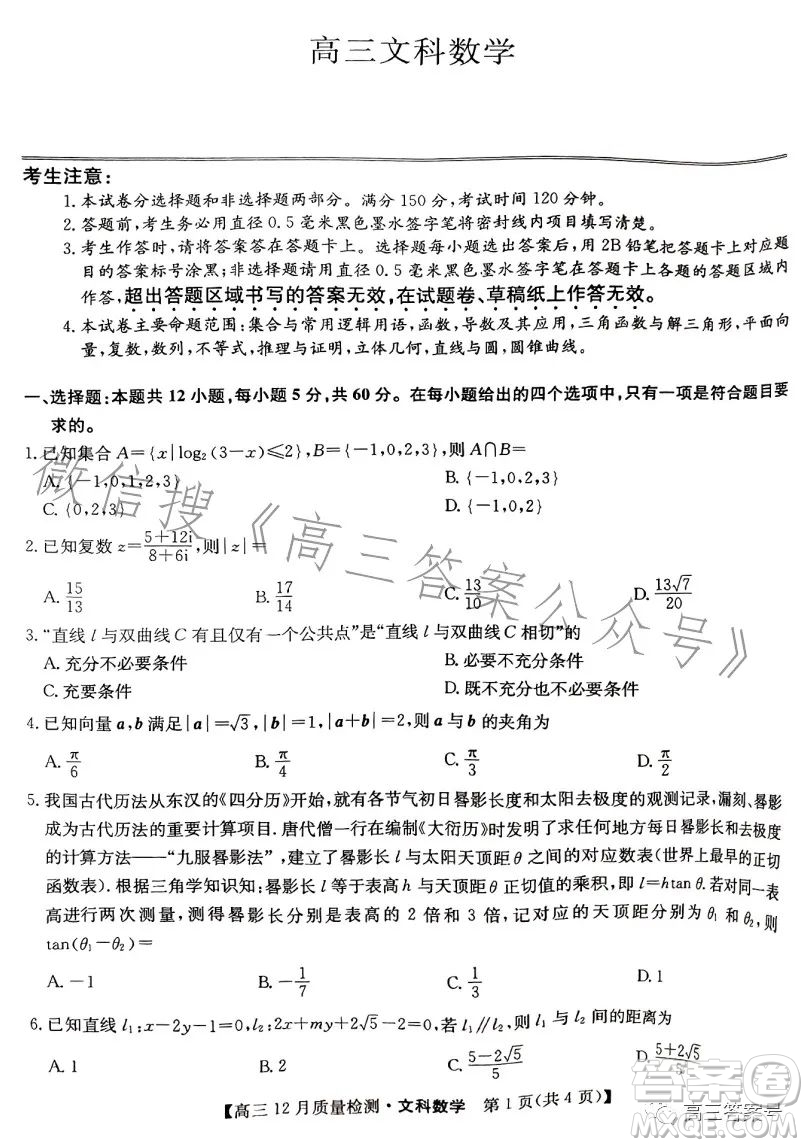 高三文科数学
考生注意:
1. 本试卷分选择题和非选择题两部分。满分 150 分,考试时间 120 分钟。
2. 答题前,考生务必用直径 0.5 毫米黑色墨水签字笔将密封线内项目填写清楚。
3. 考生作答时,请将答案答在答题卡上。选择题每小题选出答案后,用 2B 铅笔把答题卡上对应题
目的答案标号涂黑;非选择题请用直径 0.5 毫米黑色墨水签字笔在答题卡上各题的答题区域内
作答,超出答题区域书写的答案无效,在试题卷、草稿纸上作答无效。
4. 本试卷主要命题范围:集合与常用逻辑用语,函数,导数及其应用,三角函数与解三角形,平面向
量,复数,数列,不等式,推理与证明,立体几何,直线与圆,圆锥曲线。
一、选择题:本题共 12 小题,每小题 5 分,共 60 分。在每小题给出的四个选项中,只有一项是符合题目要
求的。
1. 已知集合 A={x|log₂(3-x)≤2},B={-1,0,2,3},则 A∩B=
A. {-1,0,1,2,3} B. {-1,0,2,3}
C. {0,2,3} D. {-1,0,2}
2. 已知复数 z=(5+12i)/(8+6i),则|z|=
A. 15/13 B. 17/14 C. 13/10 D. 13√7/20
3. “直线 l 与双曲线 C 有且仅有一个公共点”是“直线 l 与双曲线 C 相切”的
A. 充分不必要条件 B. 必要不充分条件
C. 充要条件 D. 既不充分也不必要条件
4. 已知向量 a,b 满足|a|=√3,|b|=1,|a+b|=2,则 a 与 b 的夹角为
A. π/6 B. π/4 C. π/3 D. π/2
5. 我国古代历法从东汉的《四分历》开始,就有各节气初日晷影长度和太阳去极度的观测记录,漏刻、晷影
成为古代历法的重要计算项目. 唐代僧一行在编制《大衍历》时发明了求任何地方每日晷影长和去极度
的计算方法——“九服晷影法”,建立了晷影长 l 与太阳天顶距 θ 的对应数表(世界上最早的正切
函数表). 根据三角学知识知:晷影长 l 等于表高 h 与天顶距 θ 正切值的乘积,即 l=htan θ. 若对同一表
高进行两次测量,测得晷影长分别是表高的 2 倍和 3 倍,记对应的天顶距分别为 θ₁ 和 θ₂,则
tan(θ₁-θ₂)=
A. -1 B. -1/7 C. 1/3 D. 1
6. 已知直线 l₁:x-2y-1=0,l₂:2x+my+2√5-2=0,若 l₁∥l₂,则 l₁ 与 l₂ 间的距离为
A. 1 B. 2 C. (5-2√5)/5 D. (5+2√5)/5
【高三 12 月质量检测·文科数学 第 1 页(共 4 页)】
微信搜《高三答案公众号》
答案圈
MXQE.COM
高三答案号